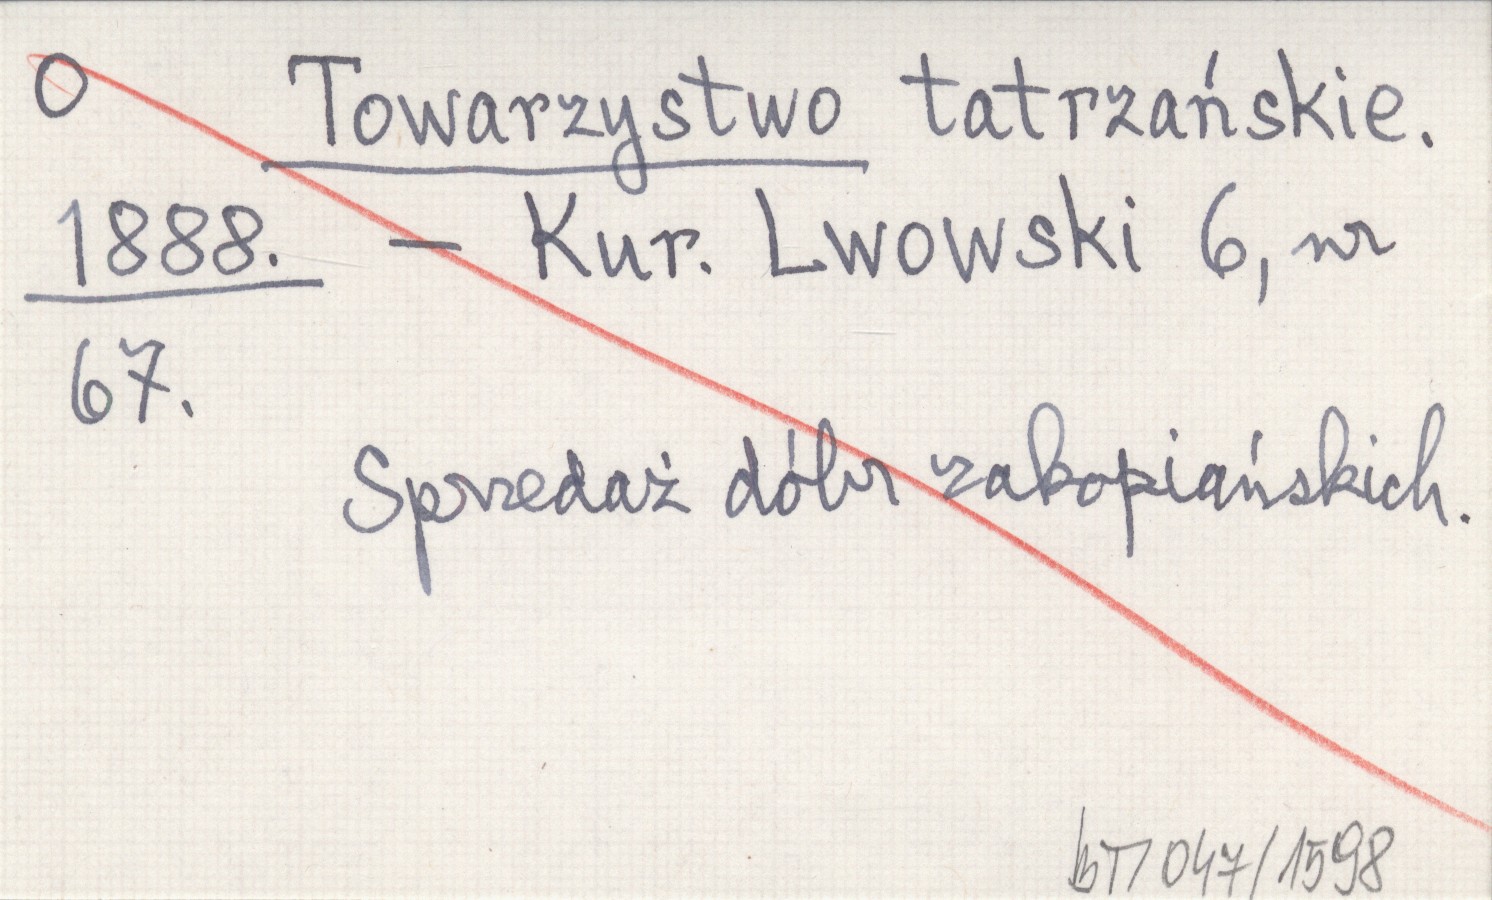 O Towarzystwo tatrzańskie.
1888. — Kur. Lwowski 6, nr
67.
Sprzedaż dóbr zakopiańskich.
047/1598